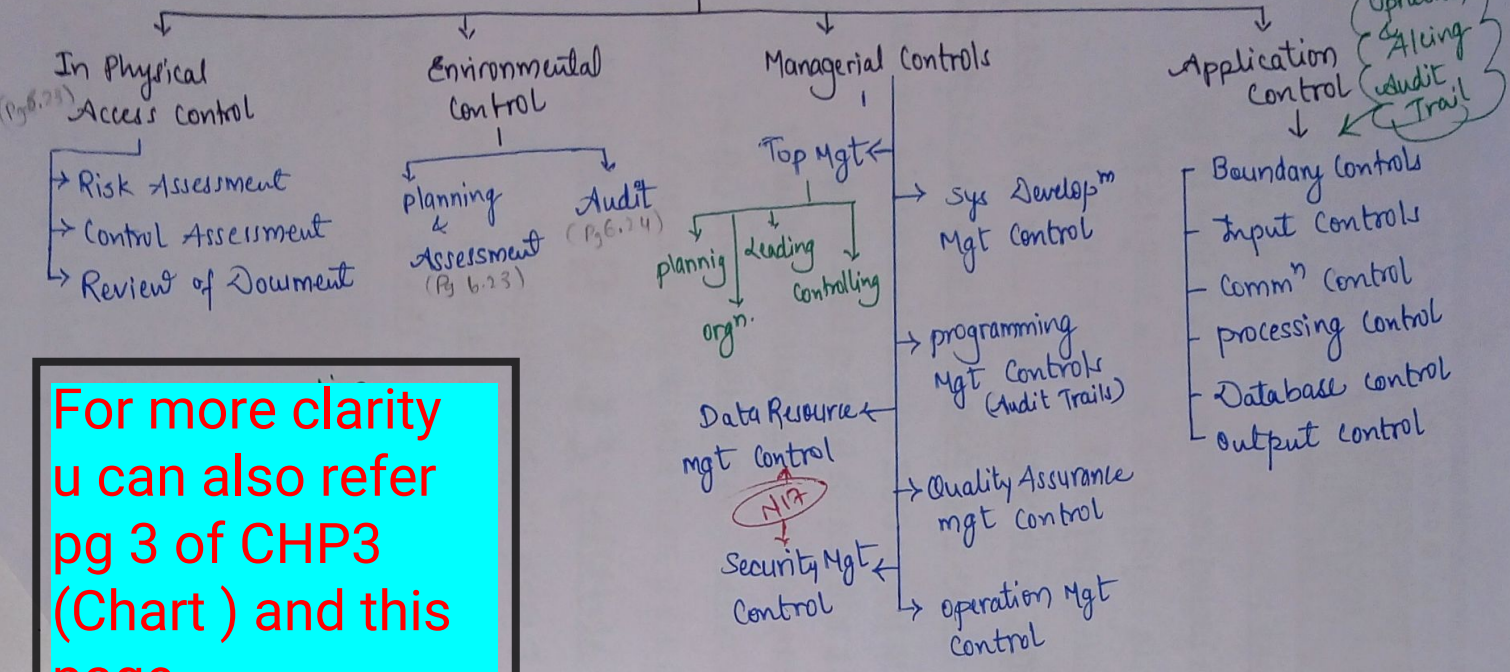 In Physical
Access control
(Pg 6.23)
→ Risk Assessment
→ Control Assessment
→ Review of Dowment
Environmental
Control
planning
&
Assessment
(Pg 6.23)
Audit
(Pg 6.24)
Managerial Controls
Top Mgt
plannig
orgn.
Leading
Controlling
Data Resource
mgt Control
N17
Security Mgt
Control
→ Sys Developm
Mgt Control
→ programming
Mgt Controls
(Audit Trails)
→ Quality Assurance
mgt Control
→ operation Mgt
Control
Application
Control
&
Audit
Trail
Boundary Controls
Input Controls
Commn Control
processing Control
Database control
output control
For more clarity
u can also refer
pg 3 of CHP3
(Chart ) and this
page